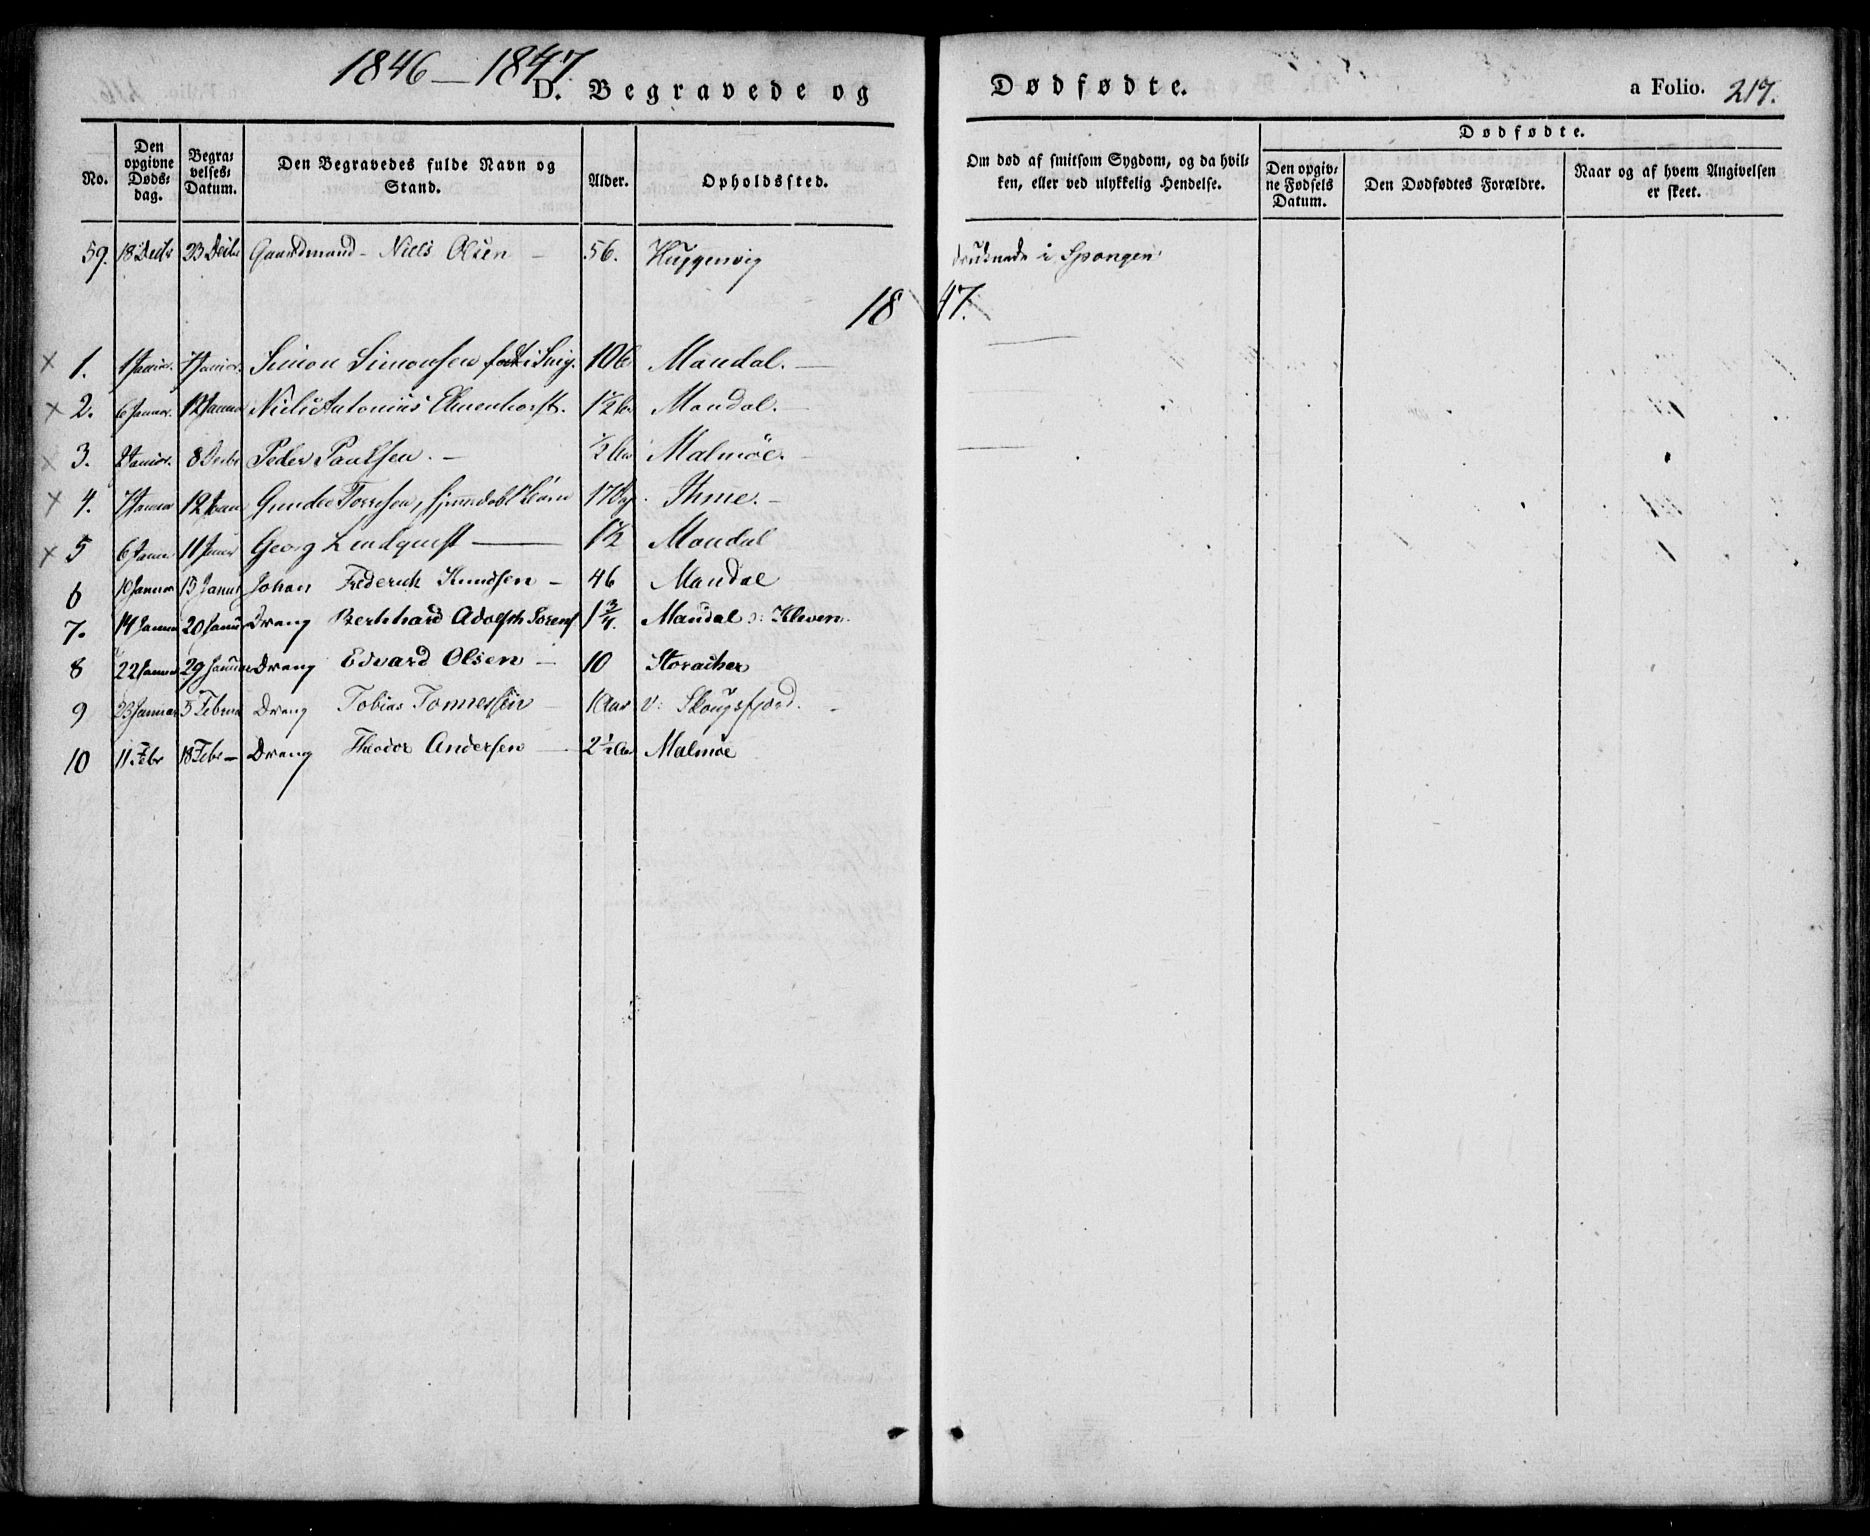 1846 — 1847
D. Begravede og Dødfødte. a Folio. 217.
No. | Den opgivne Døds-dag. | Begra-velses-Datum. | Den Begravedes fulde Navn og Stand. | Alder. | Opholdssted. | Om død af smitsom Sygdom, og da hvil-ken, eller ved ulykkelig Hendelse. | Dødfødte. | Den opgiv-ne Fødsels Datum. | Den Dødfødtes Forældre. | Naar og af hvem Angivelsen er skeet.
59. 18 Decbr 23 Decbr Gaardmand - Niels Olsen — 56. druknede i Spongen
1847.
1. 1 Januar. 7 Januar. Simon Simonsen 10 Mandal. —
2. 6 Januar. 12 Januar Antonius 1½ Mandal. —
3. 2 Januar. 8 Decbr Peder Paulsen. — ½ Malmöe. —
4. 7 Januar 12 Janu Gunder Torresen, 17 Ihme. —
5 6 Janu 11 Janu Georg Lindquist — 1½ Mandal
6 10 Januar 13 Januar Johan Frederich Knudsen — 46 Mandal
7. 14 Januar 20 Januar Dreng Bernhard Adolph Sorens 1¾ Mandal v: Kleven
8 22 Januar 29 Januar Dreng Edvard Olsen — 10 Storacher
9 23 Januar 5 Februar Dreng Tobias Tonnessen — 1 Aar v: Skougsfjord. —
10 11 Febr 18 Febr — Dreng Theodor Andersen — 2½ Aar Malmöe